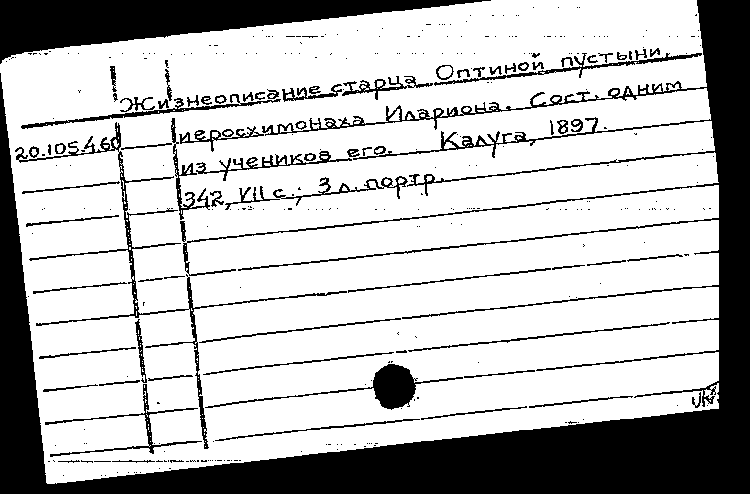 Жизнеописание старца Оптиной пустыни,
иеросхимонаха Илариона. Сост. одним
20.105.4.60
из учеников его. Калуга, 1897.
342, VII с.; 3 л. портр.